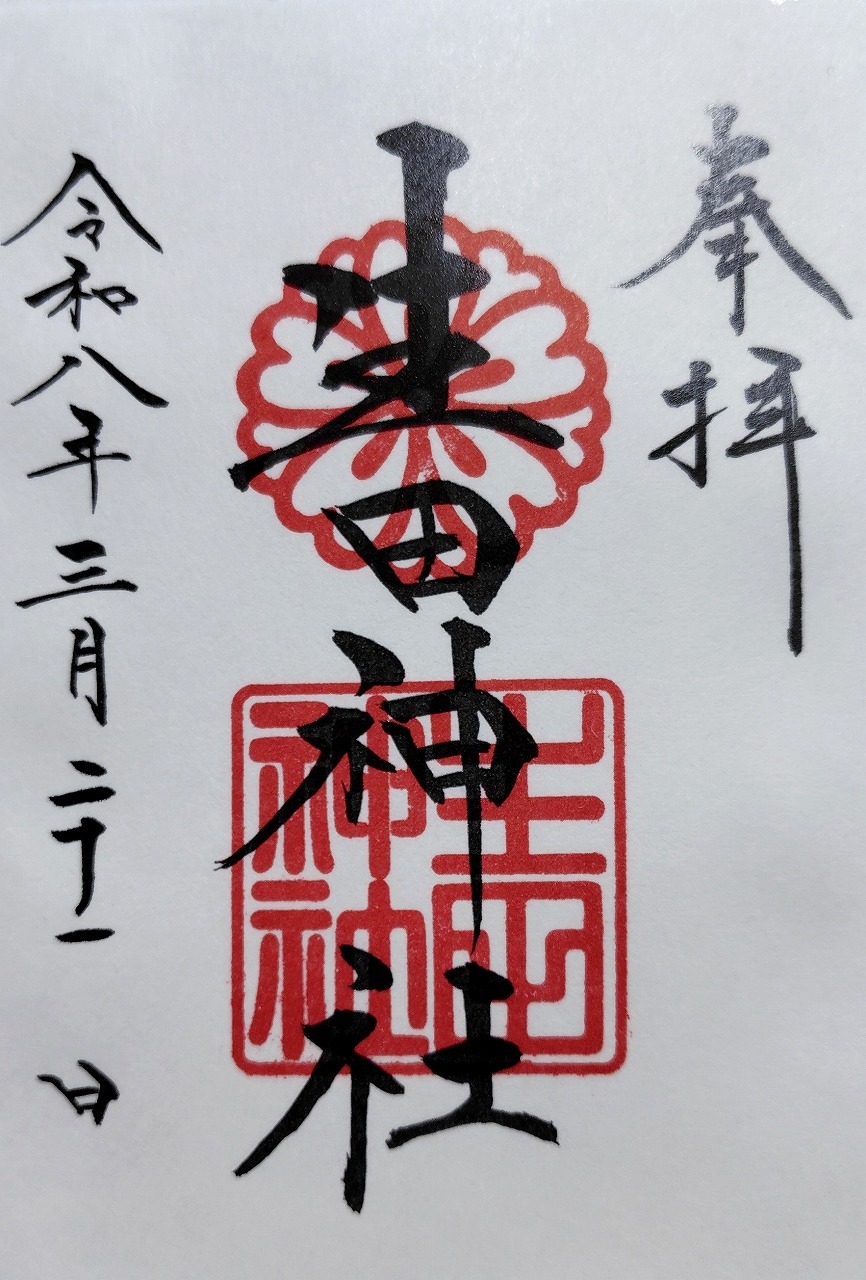 奉拝
生田神社
生田
神社
令和八年三月二十一日